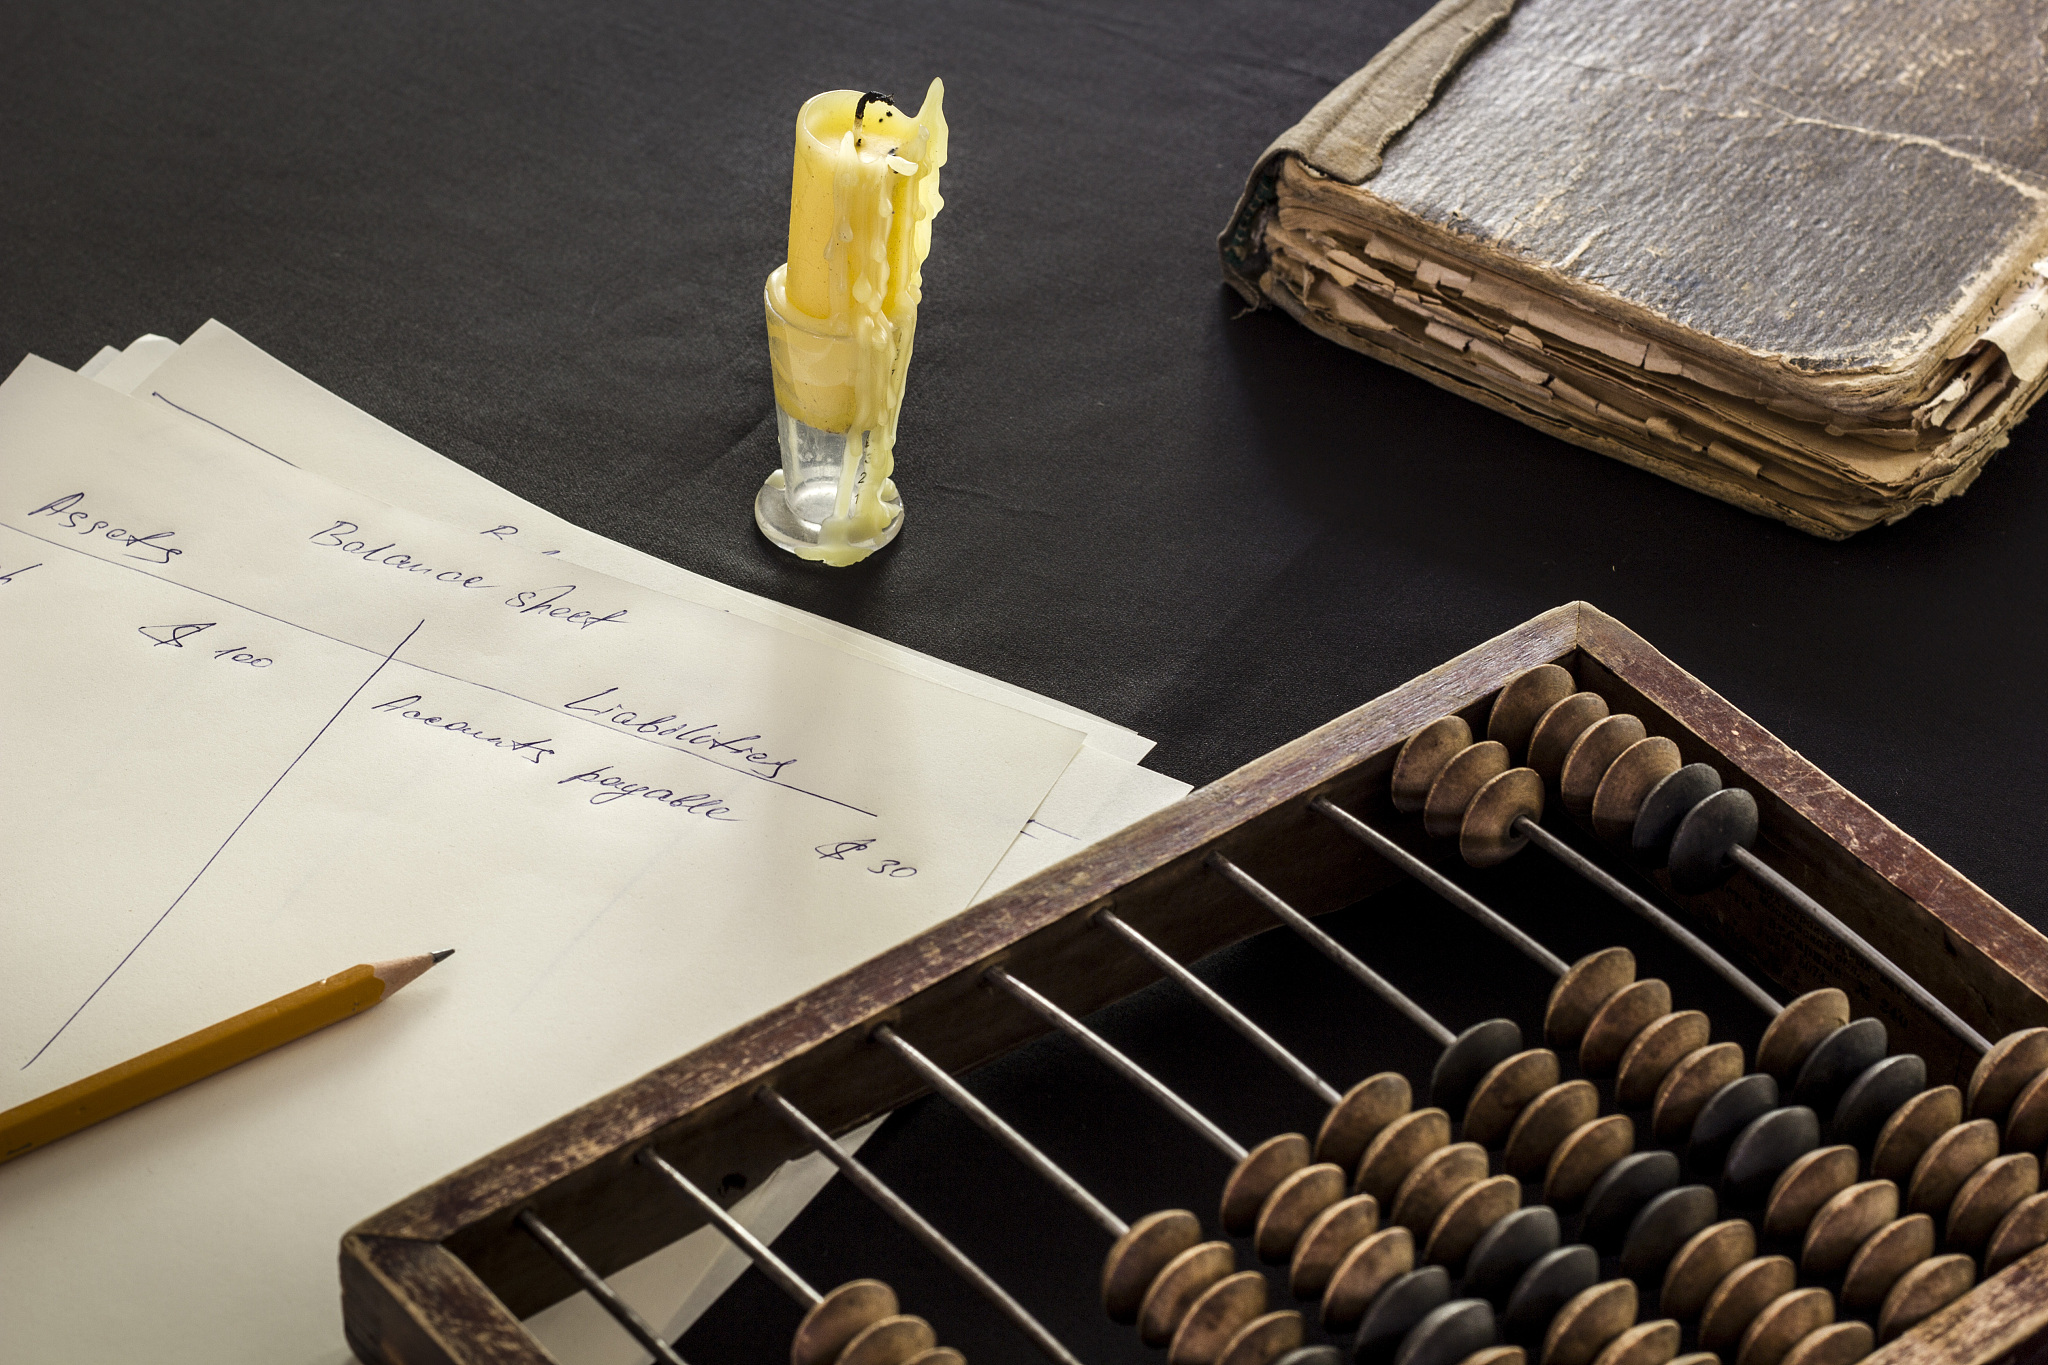 Balance sheet
Assets
$ 100
Liabilities
Accounts payable
$ 30